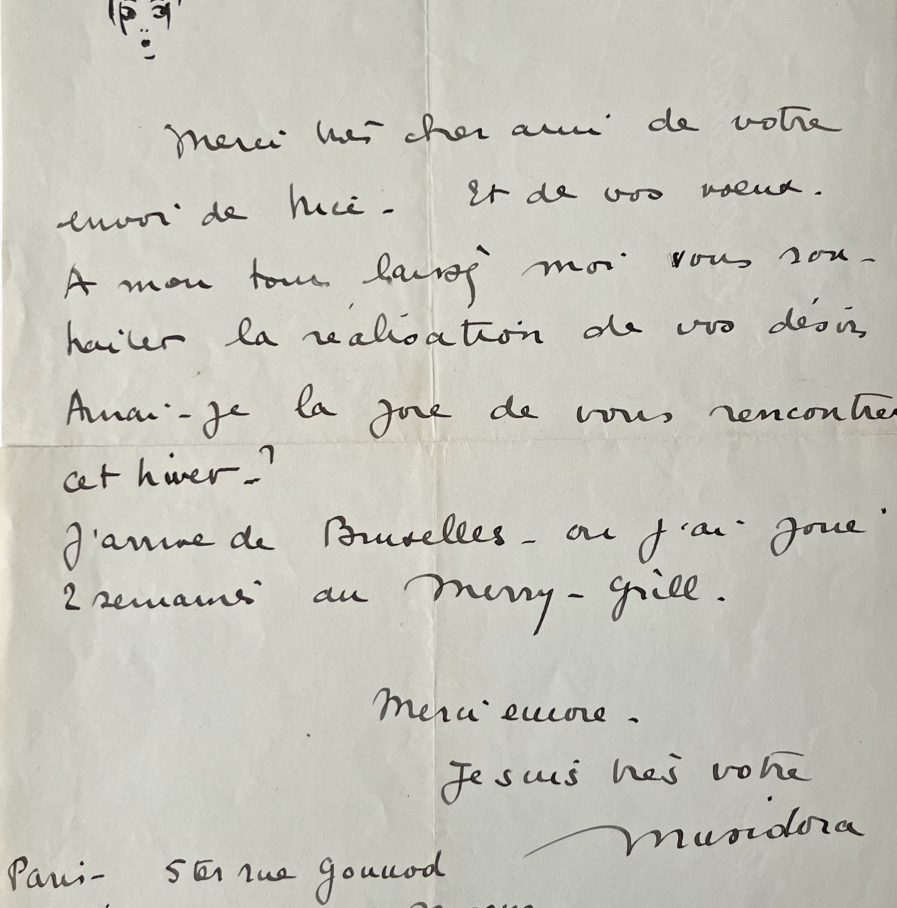 Merci très cher ami de votre
envoi de Nice. Et de vos voeux.
A mon tour laissez moi vous sou-
haiter la réalisation de vos désirs
Aurai-je la joie de vous rencontrer
cet hiver-?
J'arrive de Bruxelles - ou j'ai joué
2 semaines au Merry-Grill.
Merci encore.
Je suis très votre
Musidora
Paris- 5 ter rue Gounod